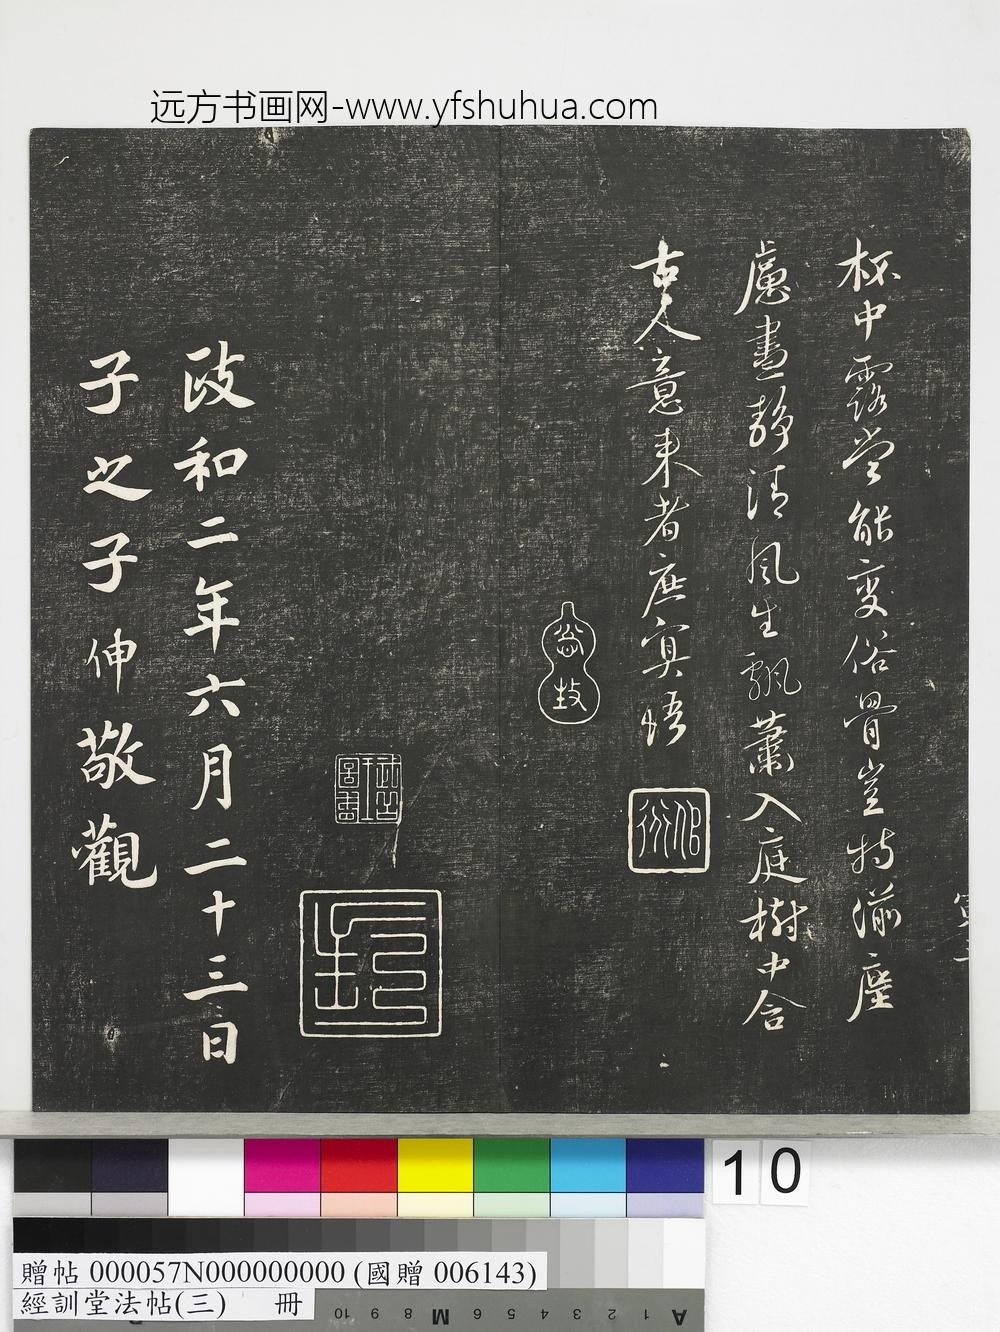 远方书画网-www.yfshuhua.com
杯中露當能變俗骨豈特湔塵
慮晝静清風生飄蕭入庭樹中含
古人意來者庶冥悟
政和二年六月二十三日
子之子伸敬觀
10
贈帖 000057N000000000 (國贈 006143)
經訓堂法帖(三) 冊
10 9 8 M 6 5 4 3 2 1 A